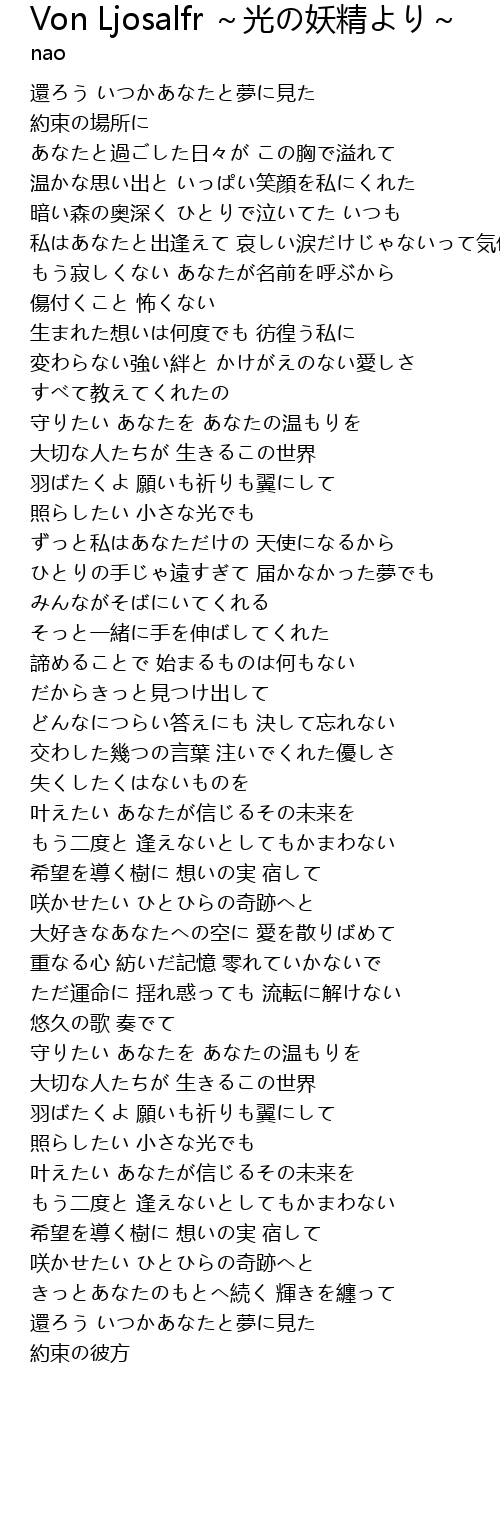 Von Ljosalfr ～光の妖精より～
nao
還ろう いつかあなたと夢に見た
約束の場所に
あなたと過ごした日々が この胸で溢れて
温かな思い出と いっぱい笑顔を私にくれた
暗い森の奥深く ひとりで泣いてた いつも
私はあなたと出逢えて 哀しい涙だけじゃないって気
もう寂しくない あなたが名前を呼ぶから
傷付くこと 怖くない
生まれた想いは何度でも 彷徨う私に
変わらない強い絆と かけがえのない愛しさ
すべて教えてくれたの
守りたい あなたを あなたの温もりを
大切な人たちが 生きるこの世界
羽ばたくよ 願いも祈りも翼にして
照らしたい 小さな光でも
ずっと私はあなただけの 天使になるから
ひとりの手じゃ遠すぎて 届かなかった夢でも
みんながそばにいてくれる
そっと一緒に手を伸ばしてくれた
諦めることで 始まるものは何もない
だからきっと見つけ出して
どんなにつらい答えにも 決して忘れない
交わした幾つの言葉 注いでくれた優しさ
失くしたくはないものを
叶えたい あなたが信じるその未来を
もう二度と 逢えないとしてもかまわない
希望を導く樹に 想いの実 宿して
咲かせたい ひとひらの奇跡へと
大好きなあなたへの空に 愛を散りばめて
重なる心 紡いだ記憶 零れていかないで
ただ運命に 揺れ惑っても 流転に解けない
悠久の歌 奏でて
守りたい あなたを あなたの温もりを
大切な人たちが 生きるこの世界
羽ばたくよ 願いも祈りも翼にして
照らしたい 小さな光でも
叶えたい あなたが信じるその未来を
もう二度と 逢えないとしてもかまわない
希望を導く樹に 想いの実 宿して
咲かせたい ひとひらの奇跡へと
きっとあなたのもとへ続く 輝きを纏って
還ろう いつかあなたと夢に見た
約束の彼方